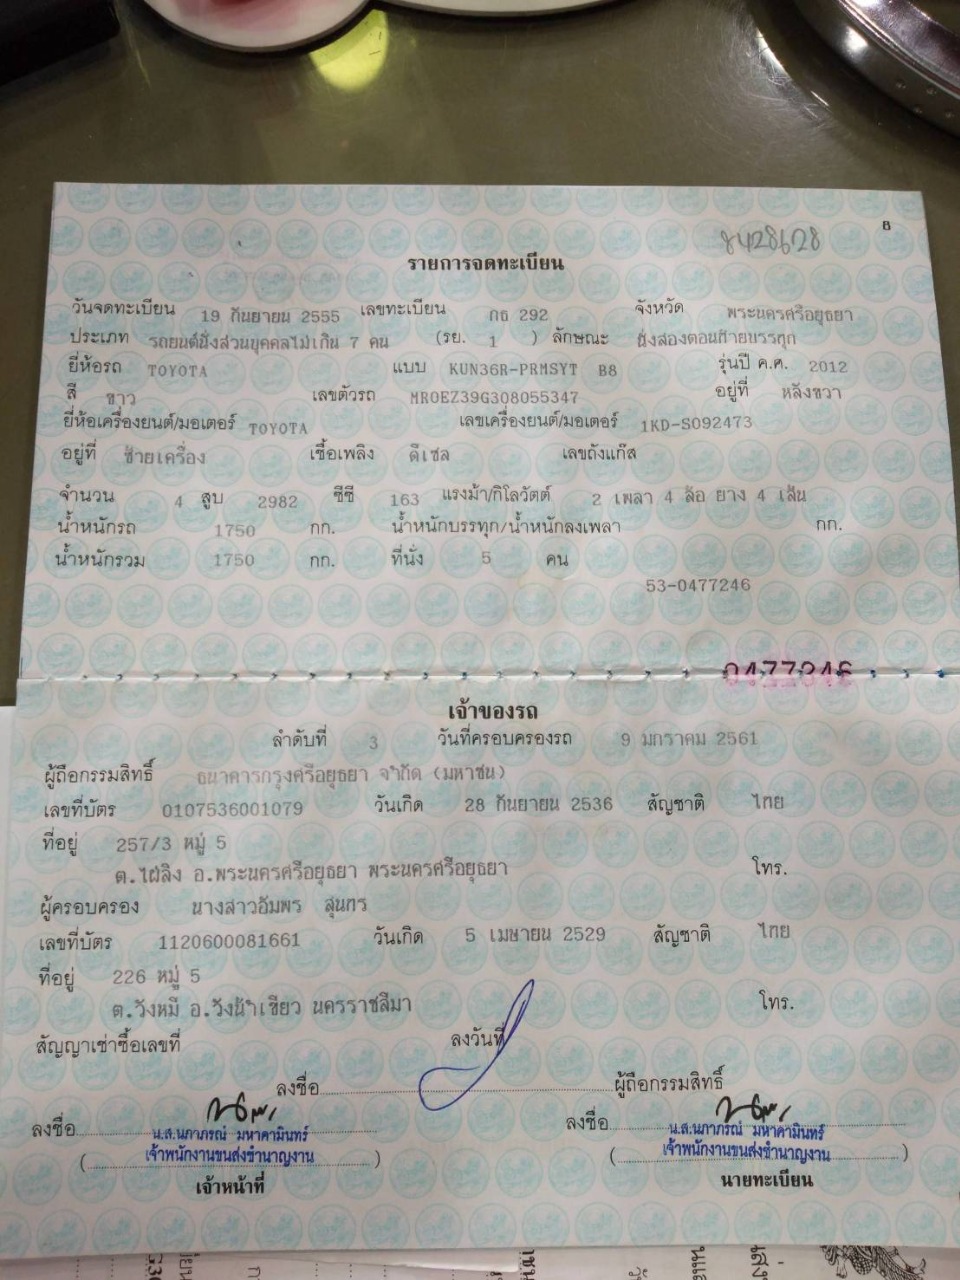 8
8428628
รายการจดทะเบียน
วันจดทะเบียน 19 กันยายน 2555 เลขทะเบียน กธ 292 จังหวัด พระนครศรีอยุธยา
ประเภท รถยนต์นั่งส่วนบุคคลไม่เกิน 7 คน (รย. 1 ) ลักษณะ นั่งสองตอนท้ายบรรทุก
ยี่ห้อรถ TOYOTA แบบ KUN36R-PRMSYT B8 รุ่นปี ค.ศ. 2012
สี ขาว เลขตัวรถ MR0EZ39G308055347 อยู่ที่ หลังขวา
ยี่ห้อเครื่องยนต์/มอเตอร์ TOYOTA เลขเครื่องยนต์/มอเตอร์ 1KD-S092473
อยู่ที่ ซ้ายเครื่อง เชื้อเพลิง ดีเซล เลขถังแก๊ส
จำนวน 4 สูบ 2982 ซีซี 163 แรงม้า/กิโลวัตต์ 2 เพลา 4 ล้อ ยาง 4 เส้น
น้ำหนักรถ 1750 กก. น้ำหนักบรรทุก/น้ำหนักลงเพลา กก.
น้ำหนักรวม 1750 กก. ที่นั่ง 5 คน
53-0477246
0477246
เจ้าของรถ
ลำดับที่ 3 วันที่ครอบครองรถ 9 มกราคม 2561
ผู้ถือกรรมสิทธิ์ ธนาคารกรุงศรีอยุธยา จำกัด (มหาชน)
เลขที่บัตร 0107536001079 วันเกิด 28 กันยายน 2536 สัญชาติ ไทย
ที่อยู่ 257/3 หมู่ 5
ต.ไผ่ลิง อ.พระนครศรีอยุธยา พระนครศรีอยุธยา โทร.
ผู้ครอบครอง นางสาวอัมพร สุนทร
เลขที่บัตร 1120600081661 วันเกิด 5 เมษายน 2529 สัญชาติ ไทย
ที่อยู่ 226 หมู่ 5
ต.วังหมี อ.วังน้ำเขียว นครราชสีมา โทร.
สัญญาเช่าซื้อเลขที่ ลงวันที่
ลงชื่อ ผู้ถือกรรมสิทธิ์
ลงชื่อ ลงชื่อ
น.ส.นภาภรณ์ มหาคามินทร์ น.ส.นภาภรณ์ มหาคามินทร์
( เจ้าพนักงานขนส่งชำนาญงาน ) ( เจ้าพนักงานขนส่งชำนาญงาน )
เจ้าหน้าที่ นายทะเบียน